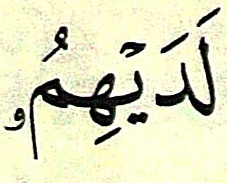 لَدَيْهِمُۥ